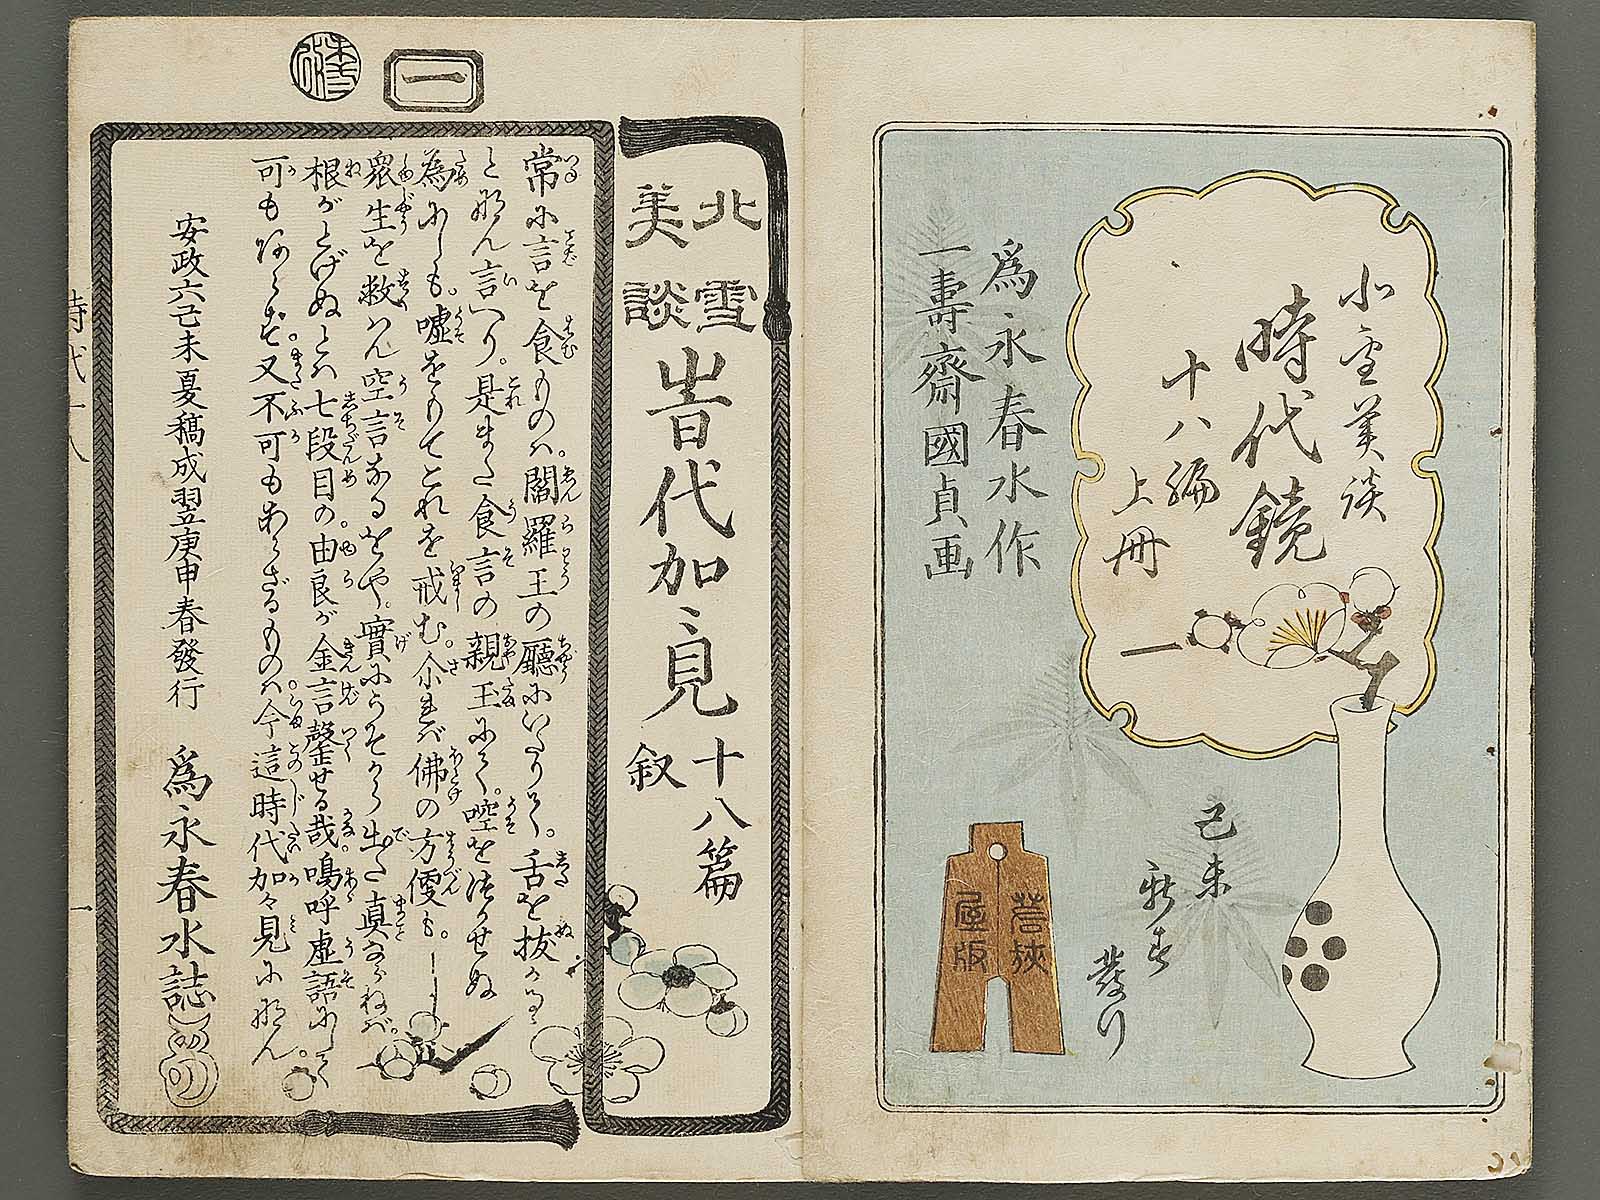 北雪美談
時代鏡
十八編
上冊
一
爲永春水作
一壽齋國貞画
己未
新春
發行
屋版
北雪
美談
時代加ゞ見
十八篇
叙
一
常に言を食ものハ。閻羅王の廳にいたりて。舌を抜かるゝ
と歟ん言へり。是また食言の親玉にて。嘘を法かせぬ
為にしも。嘘をもてこれを戒む。尒れバ佛の方便も。
衆生を救ハん空言なるをや。實にうそから出た真ならねバ。
根がとげぬとハ七段目の由良が金言。嗚呼虚語にして
可もあらず。又不可もあらざるものハ。今這時代加々見に歟ん
安政六己未夏稿成翌庚申春發行
爲永春水誌
時代十八
一